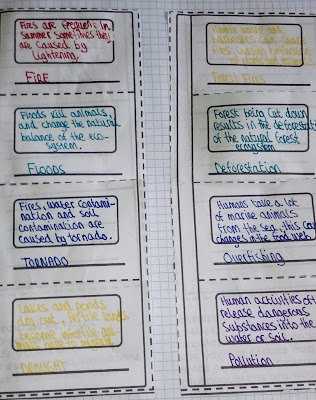 Fires are frequent in
Summer sometimes they
are caused by
lightening.
FIRE
Floods kill animals,
and change the natural
balance of the eco-
system.
FLOODS
Fires, water contami-
nation and soil
contamination are
caused by tornado.
TORNADO
Lakes and ponds
dry out, fertile lands
become
Human
Forest Fires
Forest being cut down
results in the deforestat
of the natural forest
ecosystem
Deforestation
Humans take a lot
of marine animals
from the sea, this can
changes in the food web.
Overfishing
Human activities oft
release dangerous
substances into the
water or soil.
Pollution